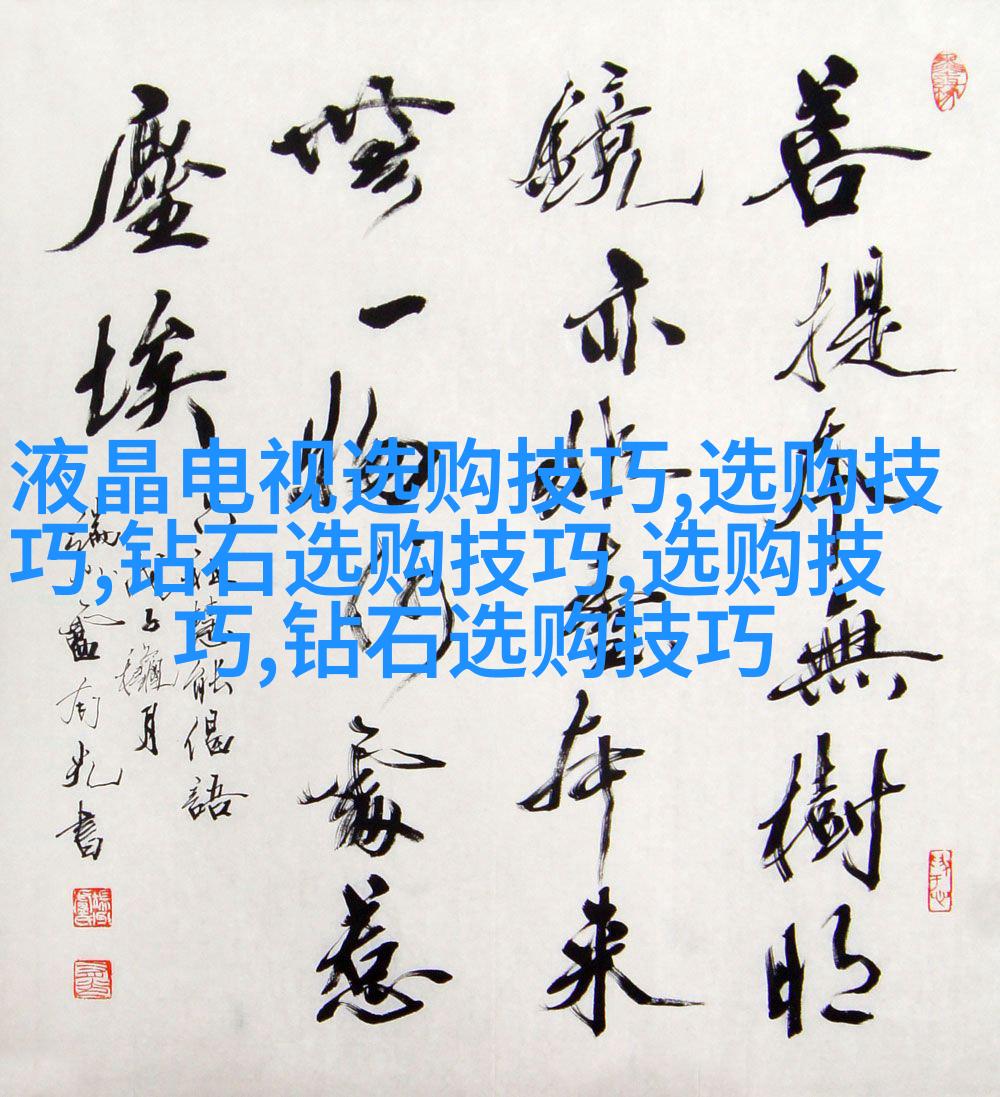 菩提本無樹明
鏡亦非臺本来
無一物何處惹
塵埃
六祖慧能偈語
戊子穐月
端州盧有光書
液晶电视选购技巧,选购技
巧,钻石选购技巧,选购技
巧,钻石选购技巧